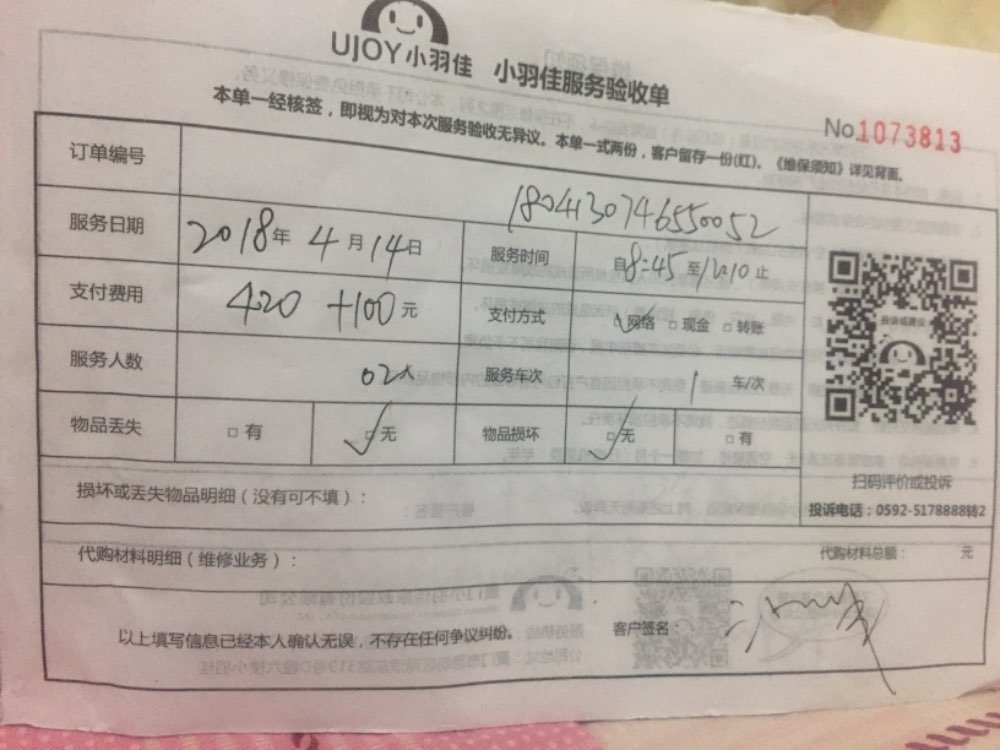 UJOY小羽佳 小羽佳服务验收单
本单一经核签，即视为对本次服务验收无异议。本单一式两份，客户留存一份(红)。《维保须知》详见背面。
No.1073813
订单编号 1804130746550052
服务日期 2018年 4月14日 服务时间 自8:45至12:10止
支付费用 420 +100元 支付方式 □网络 □现金 □转账
服务人数 02人 服务车次 1 车/次
物品丢失 □有 □无 物品损坏 □无 □有
损坏或丢失物品明细（没有可不填）：
投诉或建议
扫码评价或投诉
投诉电话：0592-5178888转2
代购材料明细（维修业务）： 代购材料总额： 元
以上填写信息已经本人确认无误，不存在任何争议纠纷。 客户签名：